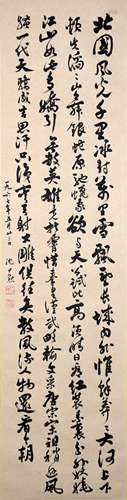 北國風光千里冰封萬里雪飄望長城内外惟餘莽莽大河上下
頓失滔滔山舞銀蛇原馳蠟象欲與天公試比高須晴日看紅裝素裹分外妖嬈
江山如此多嬌引無數英雄競折腰惜秦皇漢武略輸文采唐宗宋祖稍遜風
騷一代天驕成吉思汗只識彎弓射大雕俱往矣數風流人物還看今朝
沈尹默